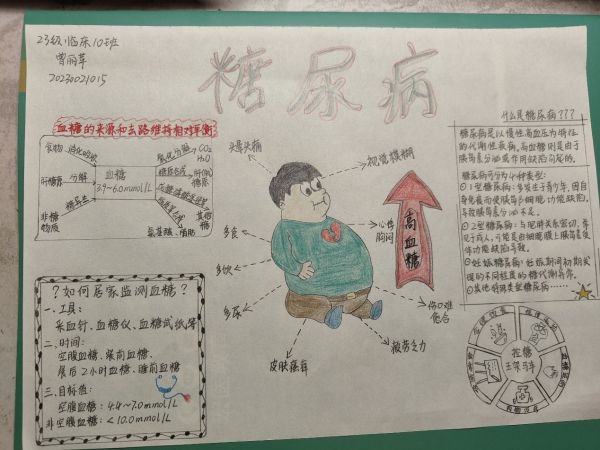 23级临床10班
曾丽萍
20230021015
糖尿病
血糖的来源和去路维持相对平衡
食物
消化吸收
肝糖原
分解
非糖
物质
糖异生
血糖
3.9~6.0mmol/L
氧化分解
CO2
H2O
糖原合成
肝(肌)
糖原
磷酸戊糖途径
其他
糖
氨基酸、脂肪
?如何居家监测血糖?
一.工具:
采血针、血糖仪、血糖试纸等
二.时间:
空腹血糖、餐前血糖、
餐后2小时血糖、睡前血糖
三.目标值:
空腹血糖:4.4~7.0mmol/L
非空腹血糖:<10.0mmol/L
头晕头痛
视觉模糊
心悸
胸闷
多食
多饮
多尿
皮肤瘙痒
疲劳乏力
伤口难
愈合
高血糖
什么是糖尿病???
糖尿病是以慢性高血压为特征
的代谢性疾病。高血糖则是由于
胰岛素分泌或作用缺陷引起的。
糖尿病可分为4种类型:
①1型糖尿病:多发生于青少年,因自
身免疫而使胰岛β细胞功能缺陷,
导致胰岛素分泌不足。
②2型糖尿病:与肥胖关系密切,常
见于成人,可能是由细胞膜上胰岛素受
体功能缺陷导致。
③妊娠糖尿病:妊娠期间初期发
现的不同程度的糖代谢异常。
④其他特殊类型糖尿病……
控糖
五架马车